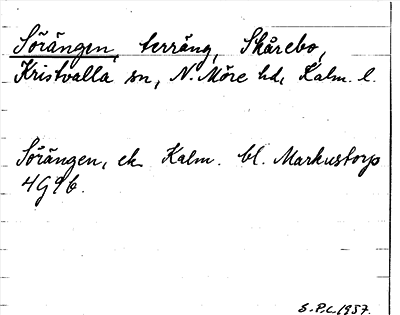 Sörängen, terräng, Skårebo,
Kristvalla sn, N. Möre hd, Kalm. l.
Sörängen, ek Kalm. bl. Markustorp
4G9b.
S.P.L. 1957.